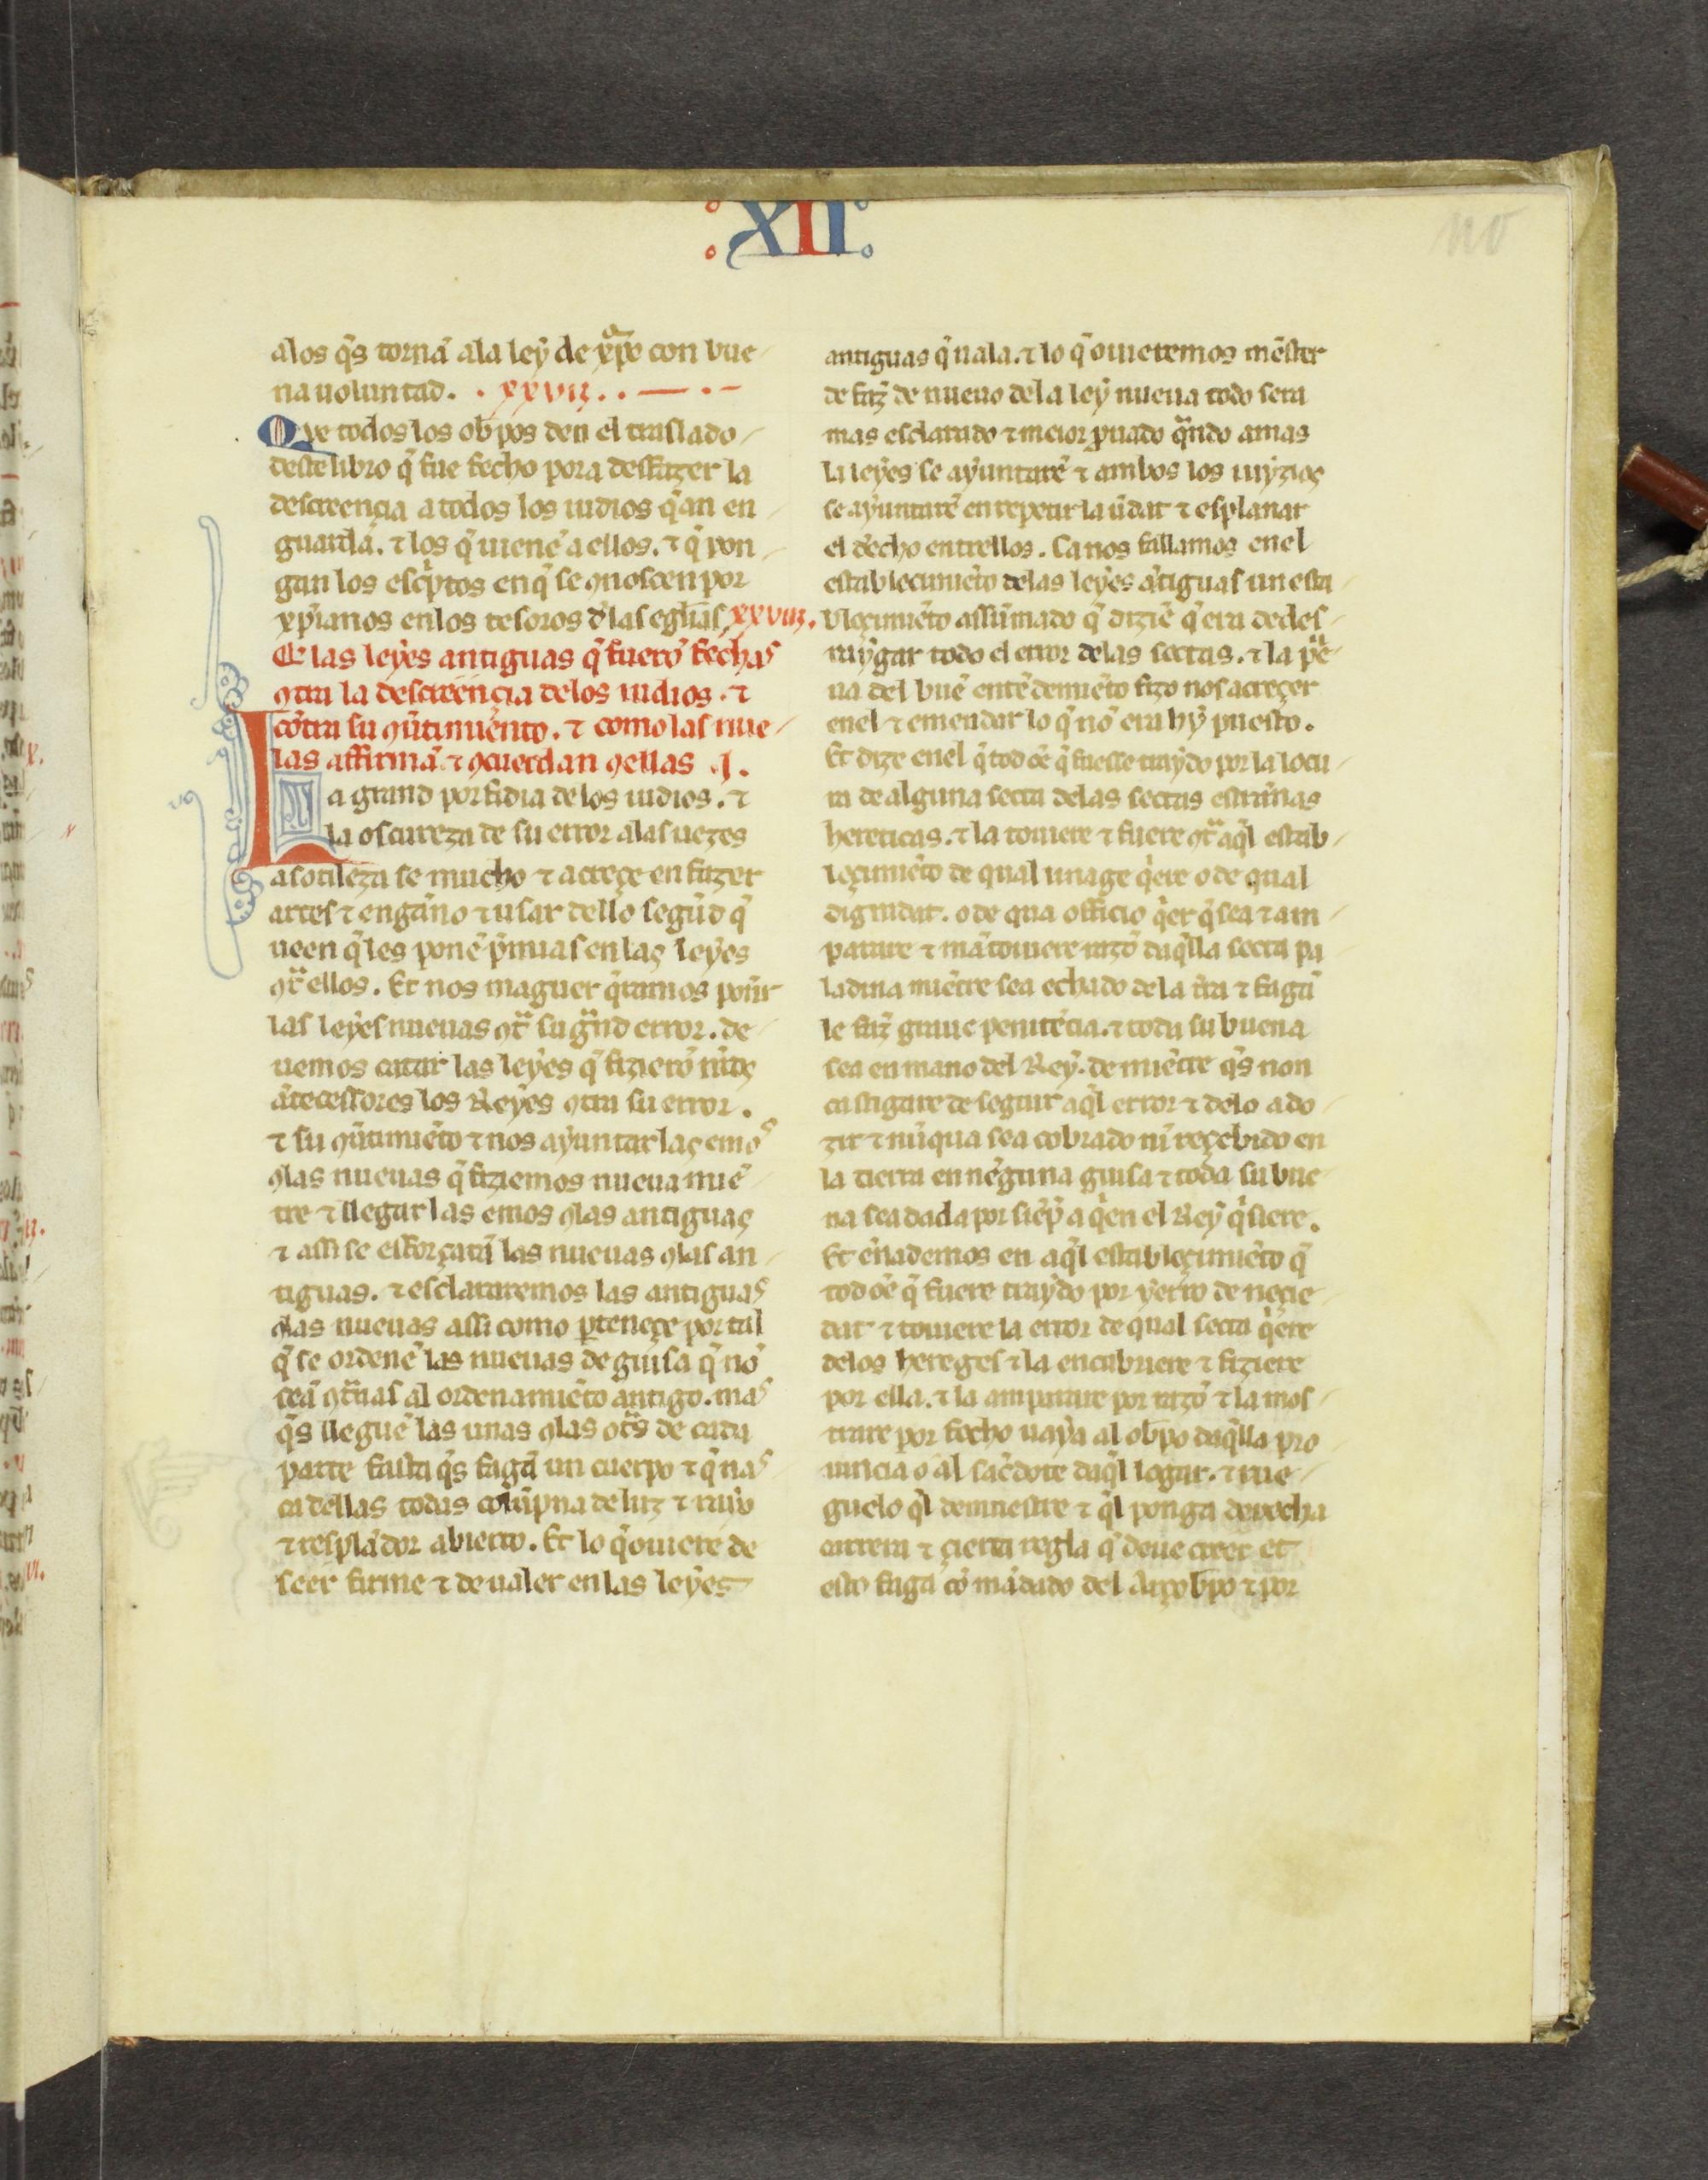 :XII:
110
alos q̃s tornã ala ley de xp̃o con bue
na uoluntad. . xxvij. .
Que todos los obpos den el traslado
deste libro q̃ fue fecho pora desfazer la
descreençia a todos los iudios q̃an en
guarda. ⁊ los q̃ uienẽ a ellos. ⁊ q̃ pon
gan los escp̃tos enq̃ se ꝯnoscen por
xp̃ianos enlos tesoros dlas egl̃ias. xxviij.
De las leyes antiguas q̃ fuerõ fechas
ꝯtra la descreencia delos iudios. ⁊
cõtra su ꝯtinimiento. ⁊ como las nue
uas affirmã ⁊ ꝯcuerdan ꝯellas .I.
La grand porfidia de los iudios. ⁊
la oscureza de su error alas uezes
asotileza se mucho ⁊ acreçe en fazer
artes ⁊ engãno ⁊ usar dello segũd q̃
ueen q̃ les ponẽ p̃miias en las leyes
ꝯt̃ ellos. Et nos maguer q̃ramos poñr
las leyes nueuas ꝯt̃ su gñd error. de
uemos catar las leyes q̃ fizierõ nr̃os
ãtecessores los Reyes ꝯtra su error.
⁊ su ꝯtinimiẽto ⁊ nos ayuntar las emos
ꝯlas nueuas q̃ fiziemos nueua miẽ
tre ⁊ llegar las emos ꝯlas antiguas
⁊ assi se esforçarã las nueuas ꝯlas an
tiguas. ⁊ esclararemos las antiguas
ꝯlas nueuas assi como ꝑteneçe por tal
q̃ se ordenẽ las nueuas de guisa q̃ nõ
seã ꝯt̃rias al ordenamiẽto antigo. mas
q̃s lleguẽ las unas ꝯlas ot̃s de cada
parte fasta q̃s fagã un cuerpo ⁊ q̃ nas
ca dellas todas colũpna de luz ⁊ rayo
⁊ resplãdor abierto. Et lo q̃ ouiere de
seer firme ⁊ de ualer en las leyes
antiguas q̃ uala. ⁊ lo q̃ ouieremos mẽster
de faz̃ de nueuo dela ley nueua todo sera
mas esclarado ⁊ meior ꝓuado q̃ndo amas
la leyes se ayuntarẽ ⁊ ambos los iuyzios
se ayuntarẽ en repetir la ũdat ⁊ esplanar
el dẽcho entrellos. Ca nos fallamos enel
establecimiẽto delas leyes ãtiguas un esta
bleçimiẽto assũmado q̃ diziẽ q̃ era dedes
raygar todo el error delas sectas. ⁊ la pẽ
na del buẽ entẽdemiẽto fizo nos acreçer
enel ⁊ emendar lo q̃ nõ era hy puesto.
Et dize enel q̃ tod oẽ q̃ fuesse traydo por la locu
ra de alguna secta delas sectas estrãnas
hereticas. ⁊ la touiere ⁊ fuere ꝯt̃ aq̃l estab
leçimiẽto de qual linage q̃ere o de qual
dignidat. o de qua officio q̃er q̃ sea ⁊ am
parare ⁊ mãtouiere razõ daq̃lla secta pa
ladina miẽtre sea echado dela tr̃ra ⁊ fagã
le faz̃ graue penitẽcia. ⁊ toda su buena
sea en mano del Rey. de miẽtre q̃s non
castigare de seguir aq̃l error ⁊ delo ado
zir ⁊ nũqua sea cobrado nĩ reçebido en
la tierra en nẽguna guisa ⁊ toda su bue
na sea dada por siẽp̃ a q̃en el Rey q̃siere.
Et ẽnademos en aq̃l estableçimiẽto q̃
tod oẽ q̃ fuere traydo por yerro de neçie
dat ⁊ touiere la error de qual secta q̃ere
delos hereges ⁊ la encubriere ⁊ fiziere
por ella. ⁊ la amparare por razõ ⁊ la mos
trare por fecho uaya al obpo daq̃lla pro
uincia o al sac̃dote daq̃l logar. ⁊ rue
guelo q̃l demuestre ⁊ q̃l ponga derecha
carrera ⁊ çierta regla q̃ deue creer et
esto faga cõ mãdado del Arçobpo ⁊ por